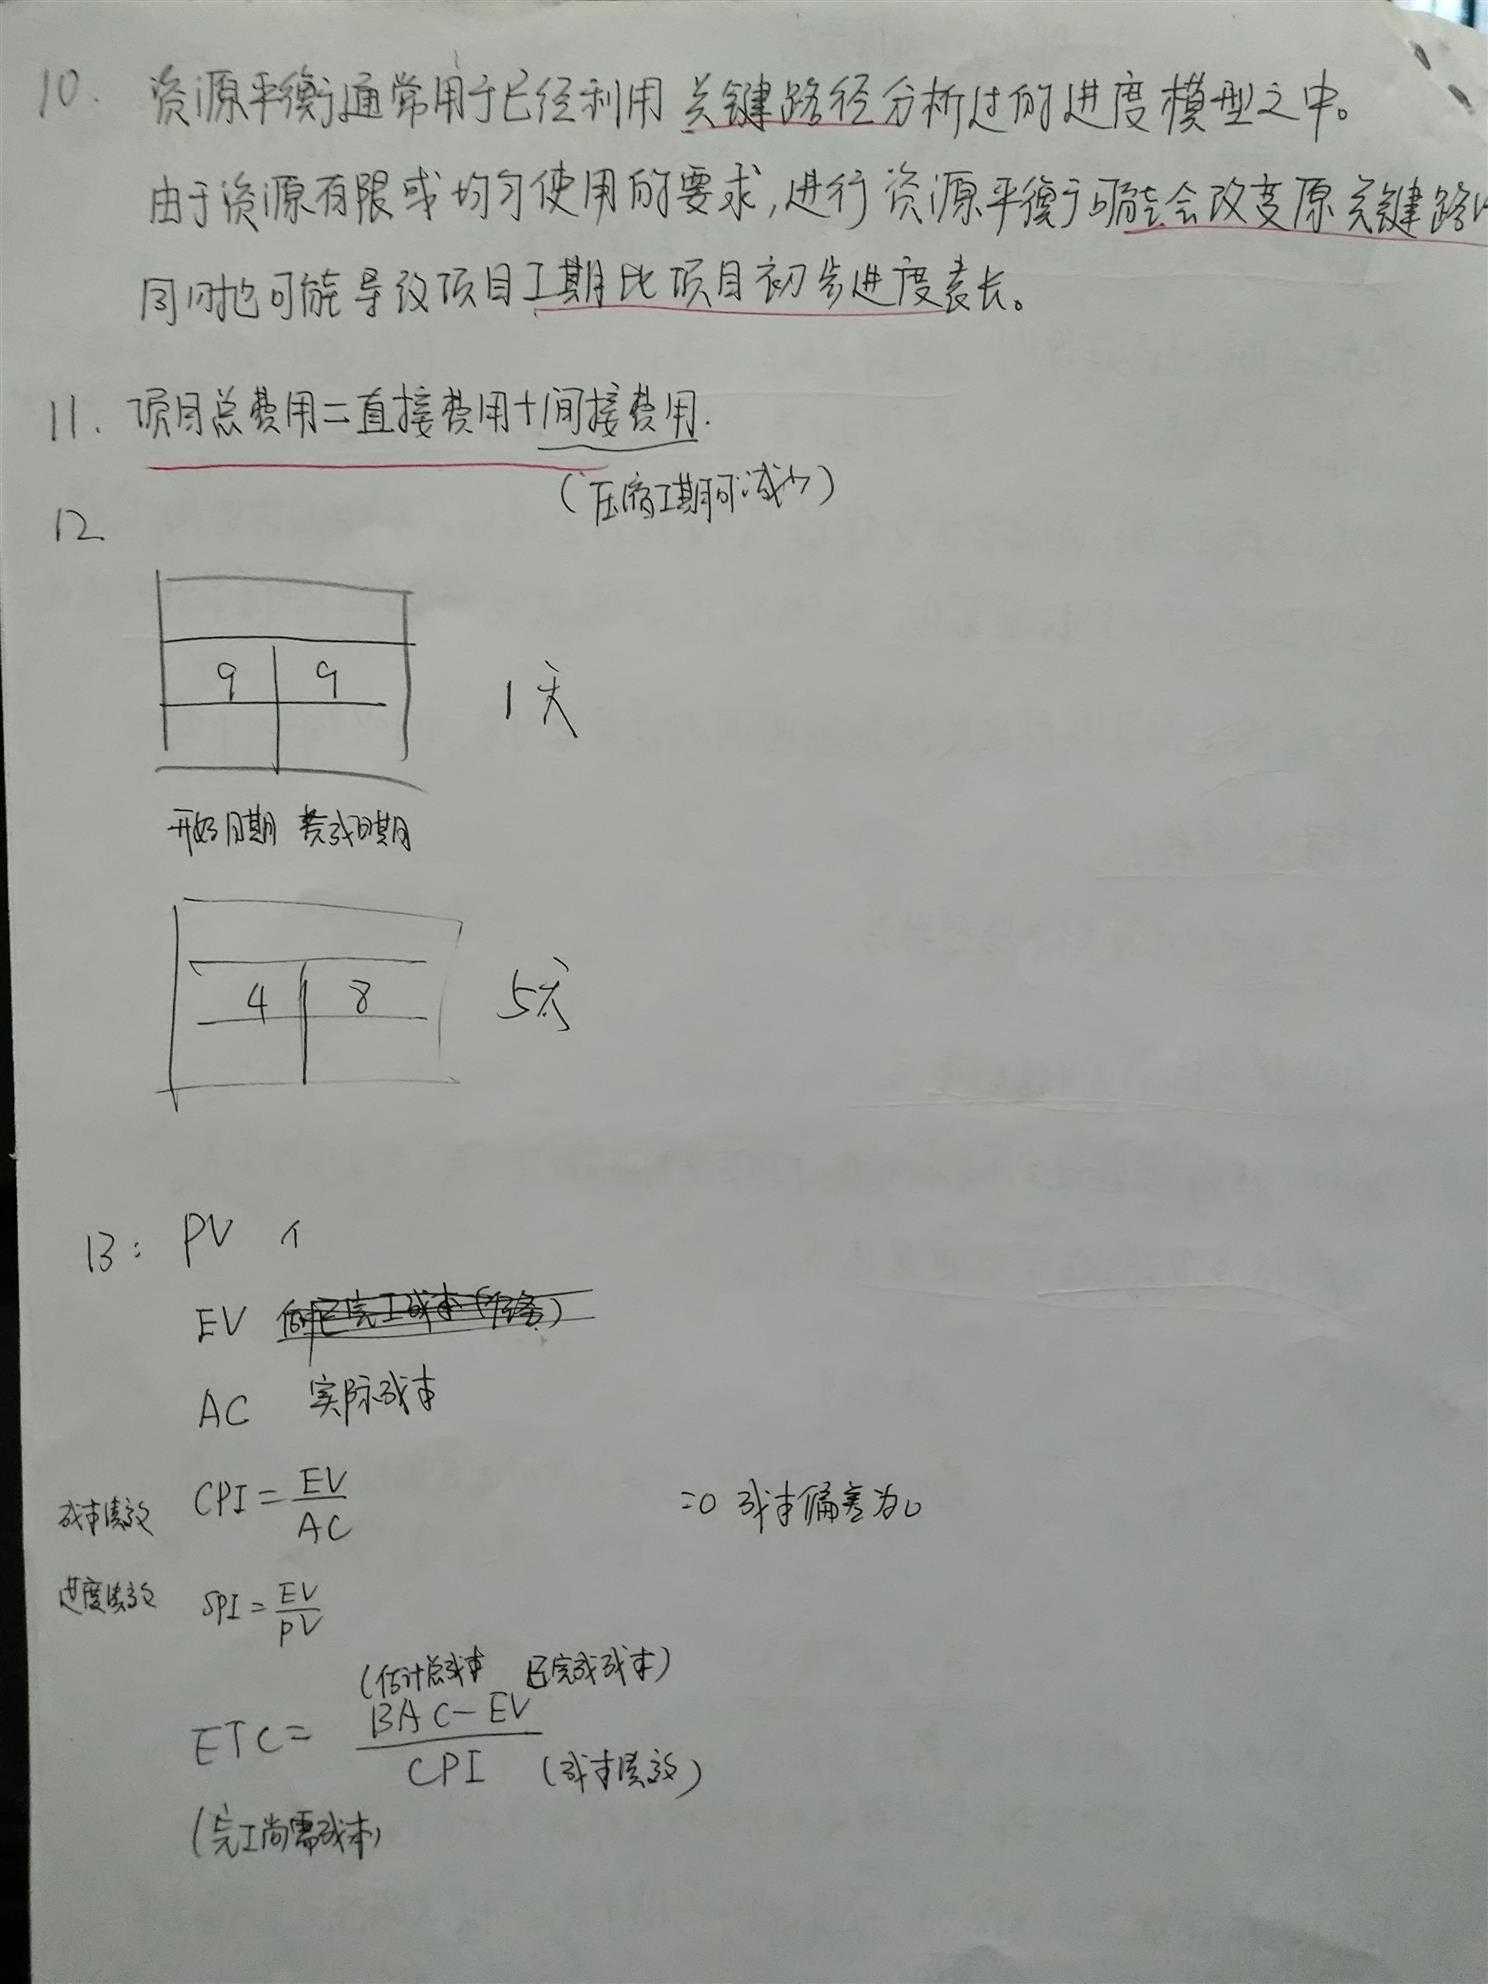 10. 资源平衡通常用于已经利用关键路径分析过的进度模型之中。
由于资源有限或均匀使用的要求,进行资源平衡可能会改变原关键路
同时也可能导致项目工期比项目初步进度表长。
11. 项目总费用=直接费用+间接费用.
(压缩工期可减少)
12
9 9 1天
开始日期 完成日期
4 8 5天
13: PV 个
EV
AC 实际成本
成本绩效 CPI = EV/AC =0 成本偏差为0
进度绩效 SPI = EV/PV
(估计总成本 已完成成本)
ETC = BAC-EV/CPI (成本绩效)
(完工尚需成本)